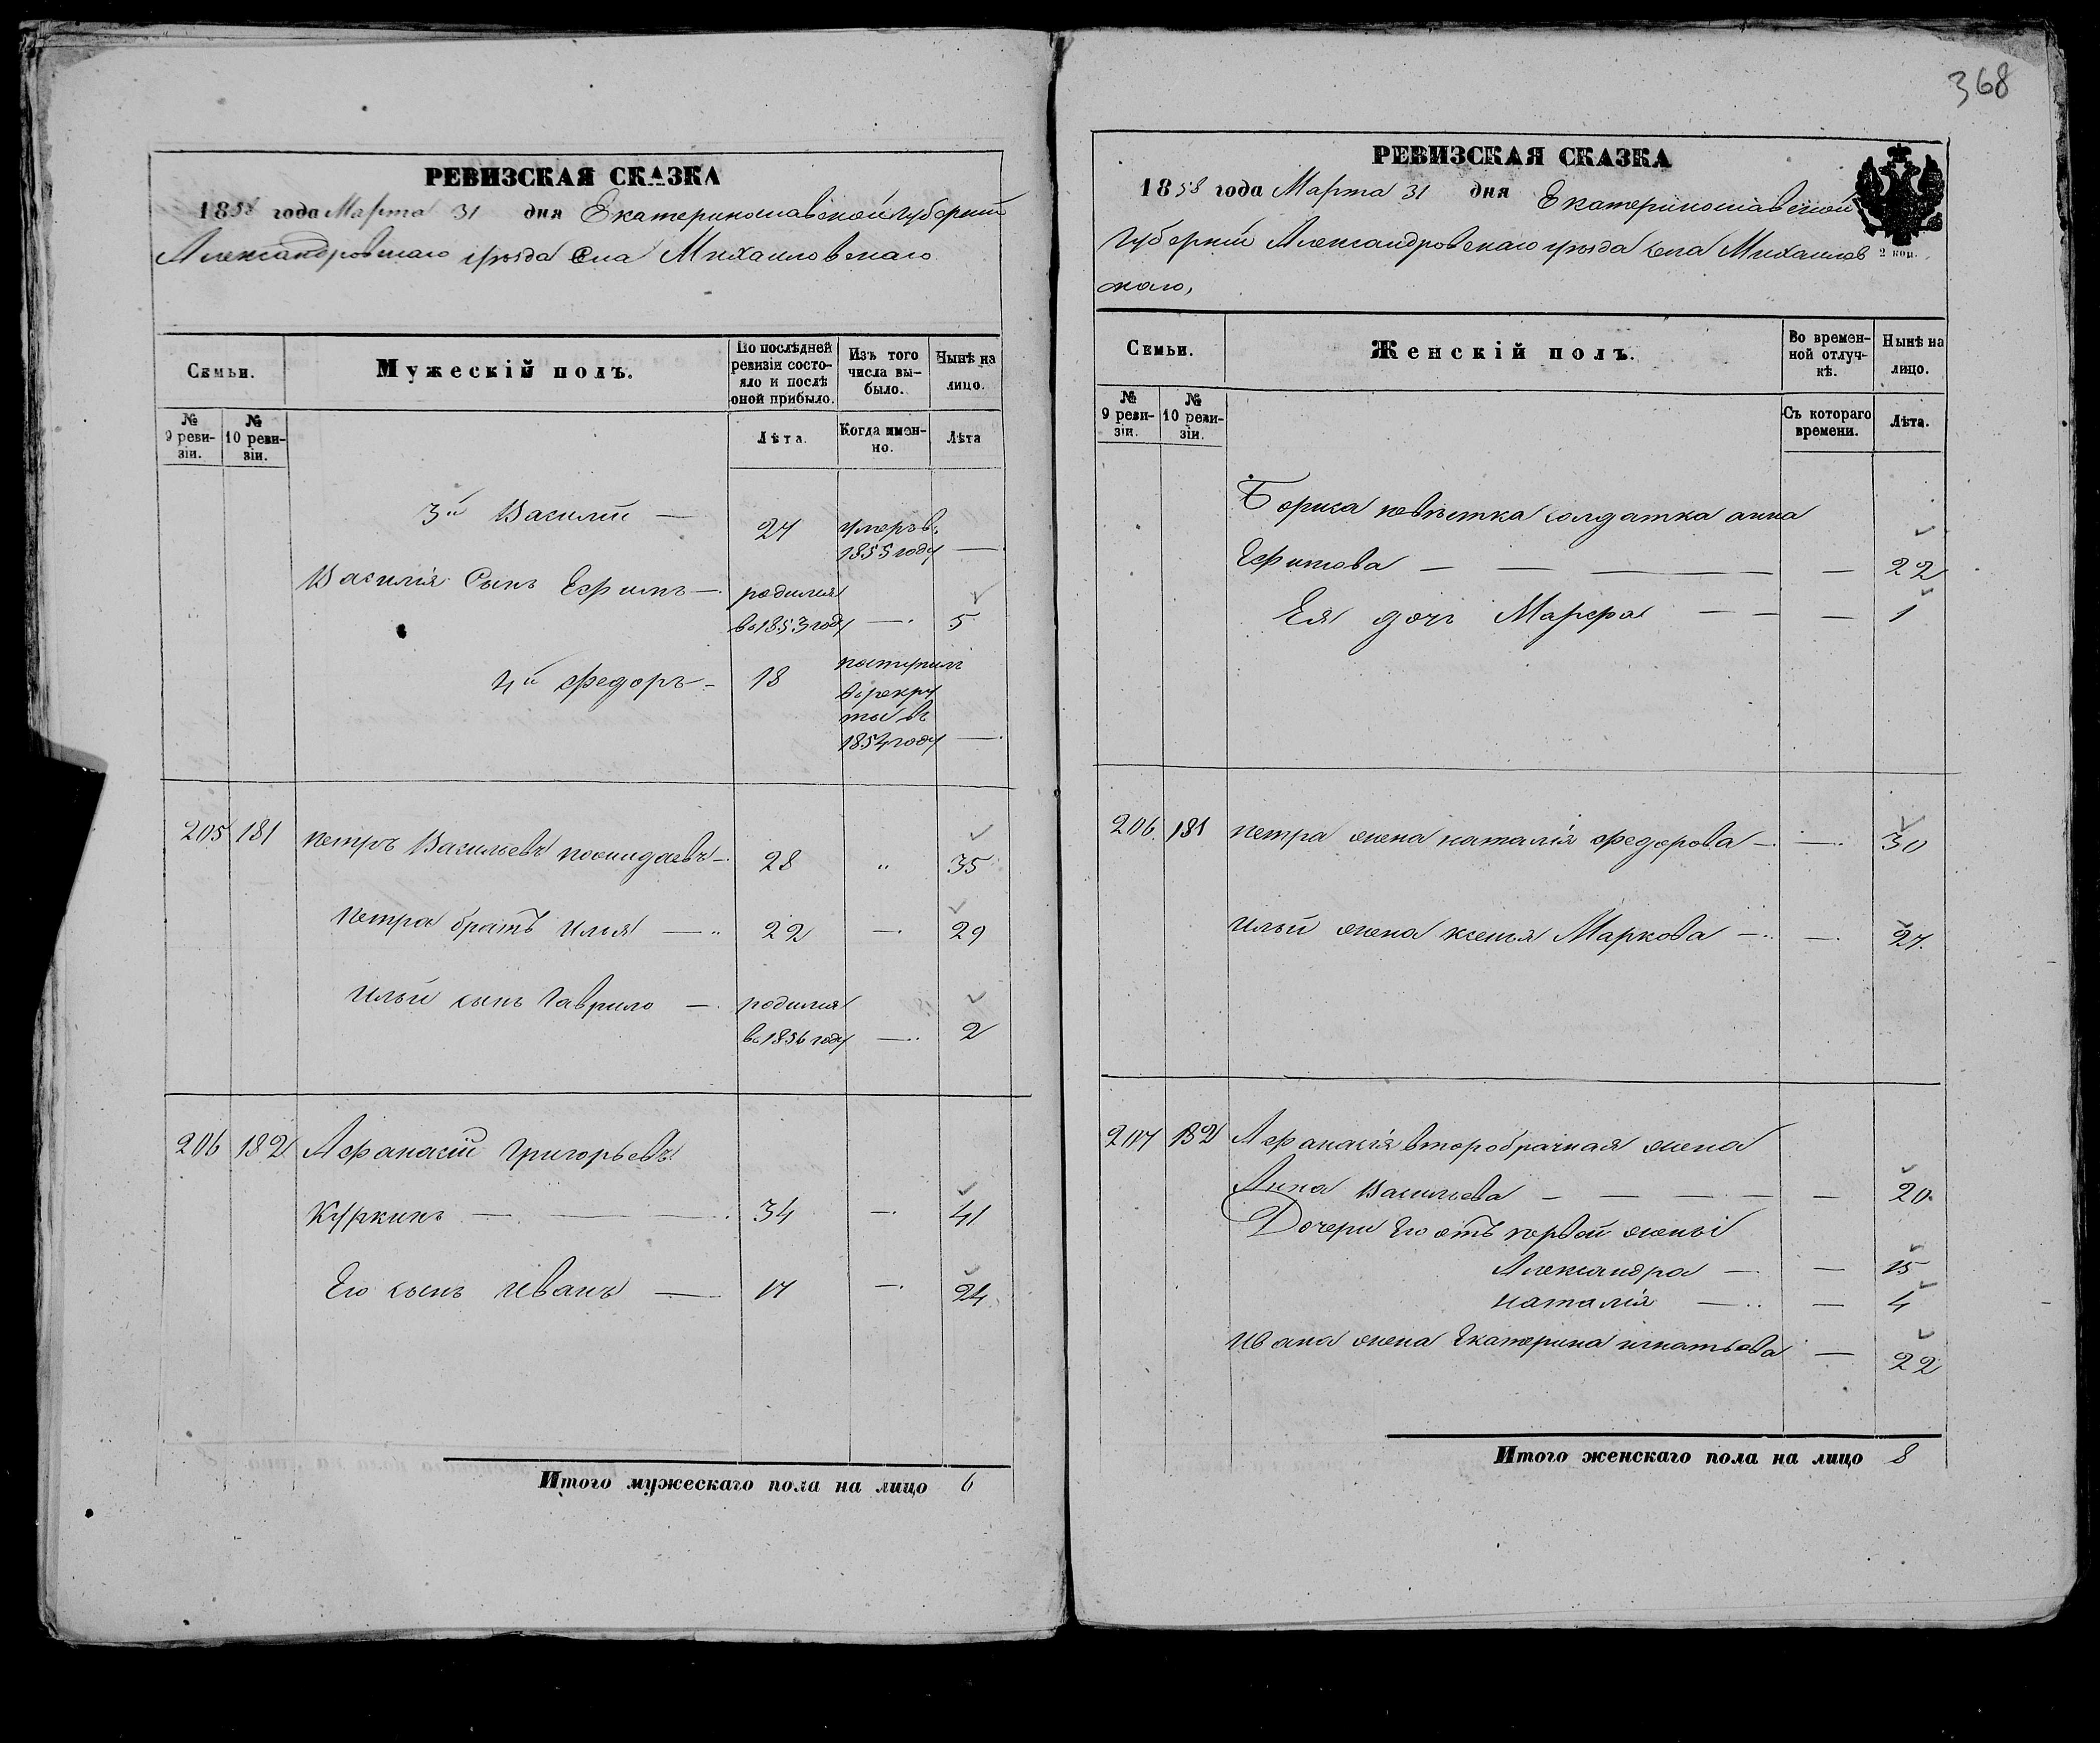 368
РЕВИЗСКАЯ СКАЗКА
1858 года Марта 31 дня Екатеринославской губерніи
Александровскаго уѣзда Села Михайловскаго
Семьи.
Мужескій полъ.
По послѣдней ревизіи состояло и послѣ оной прибыло.
Изъ того числа выбыло.
Нынѣ на лицо.
№ 9 ревизіи.
№ 10 ревизіи.
Лѣта.
Когда именно.
Лѣта
3й Василій — 27 умеръ въ
1855 году —
Василія Сынъ Ефимъ — родился
въ 1853 году — 5
4й Федоръ — 18 поступилъ
въ рекру
ты въ
1854 году —
205 181 Петръ Васильевъ — 28 „ 35
Петра братъ Илья — 22 — 29
Ильи сынъ Гаврило — родился
въ 1856 году — 2
206 182 Афанасій Григорьевъ
Куркинъ — 34 — 41
Его сынъ Иванъ — 17 — 24
Итого мужескаго пола на лицо 6
РЕВИЗСКАЯ СКАЗКА
1858 года Марта 31 дня Екатеринославской
губерніи Александровскаго уѣзда села Михайлов
скаго,
2 коп.
Семьи.
Женскій полъ.
Во временной отлучкѣ.
Нынѣ на лицо.
№ 9 ревизіи.
№ 10 ревизіи.
Съ котораго времени.
Лѣта.
Бориса невѣстка солдатка анна
Ефимова — — — — 22
Ея дочь Марфа — — — 1
206. 181 Петра жена наталія федорова — — 30
Ильи жена ксенія Маркова — — 27.
207 182 Афанасія второбрачная жена
Анна Васильева — — — — — 20
Дочери Его отъ первой жены
Александра — — 15
наталія — — 4
Ивана жена Екатерина игнатьева — 22
Итого женскаго пола на лицо 8